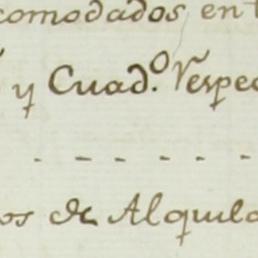 comodados, en
y Cuad.º Respec
- - - - - -
os de Alquila